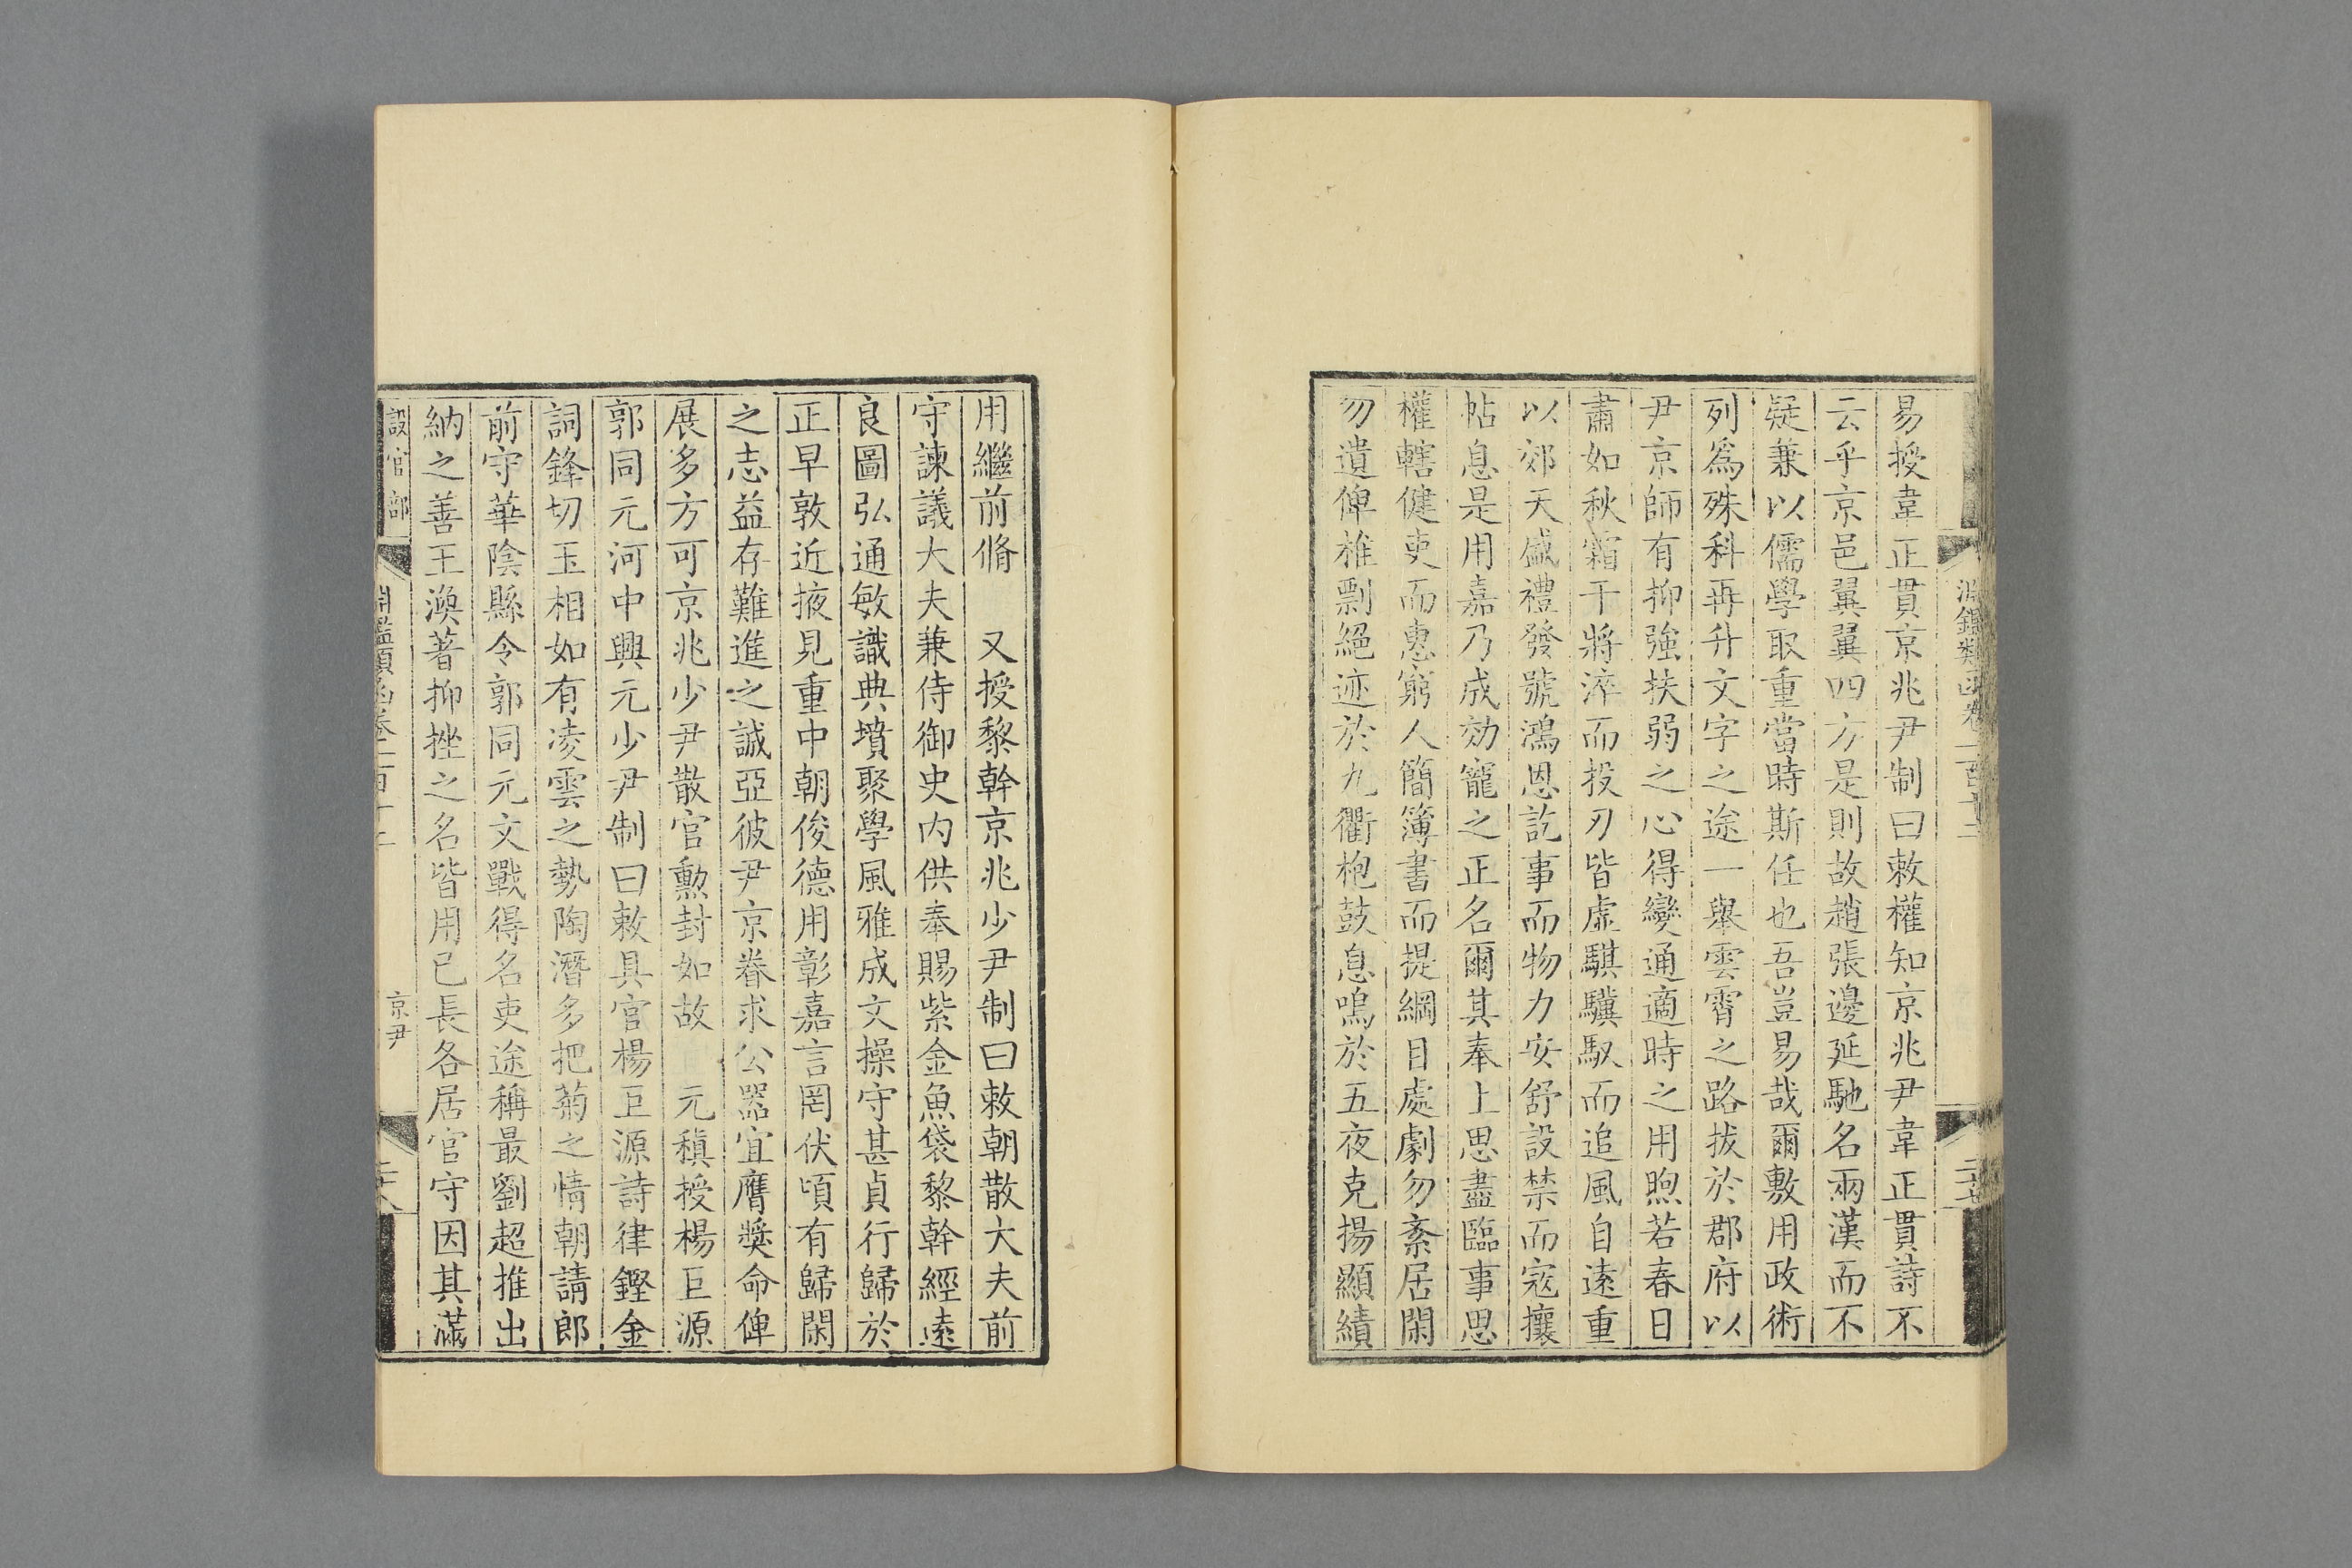 易授韋正貫京兆尹制曰敕權知京兆尹韋正貫詩不
云乎京邑翼翼四方是則故趙張邊延馳名兩漢而不
疑兼以儒學取重當時斯任也吾豈易哉爾敷用政術
列爲殊科再升文字之途一舉雲霄之路拔於郡府以
尹京師有抑強扶弱之心得變通適時之用煦若春日
肅如秋霜干將淬而投刃皆虛騏驥馭而追風自遠重
以郊天盛禮發號鴻恩訖事而物力安舒設禁而寇攘
帖息是用嘉乃成効寵之正名爾其奉上思盡臨事思
權轄健吏而惠窮人簡簿書而提綱目處劇勿紊居閑
勿遺俾椎剽絕迹於九衢枹鼓息鳴於五夜克揚顯績
用繼前脩　又授黎幹京兆少尹制曰敕朝散大夫前
守諫議大夫兼侍御史內供奉賜紫金魚袋黎幹經遠
良圖弘通敏識典墳聚學風雅成文操守甚貞行歸於
正早敦近掖見重中朝俊德用彰嘉言罔伏頃有歸閑
之志益存難進之誠亞彼尹京眷求公器宜膺獎命俾
展多方可京兆少尹散官勲封如故　元稹授楊巨源
郭同元河中興元少尹制曰敕具官楊巨源詩律鏗金
詞鋒切玉相如有凌雲之勢陶潛多把菊之情朝請郎
前守華陰縣令郭同元文戰得名吏途稱最劉超推出
納之善王渙著抑挫之名皆用已長各居官守因其滿
設官部　淵鑑類函卷一百十二　京尹　二十八